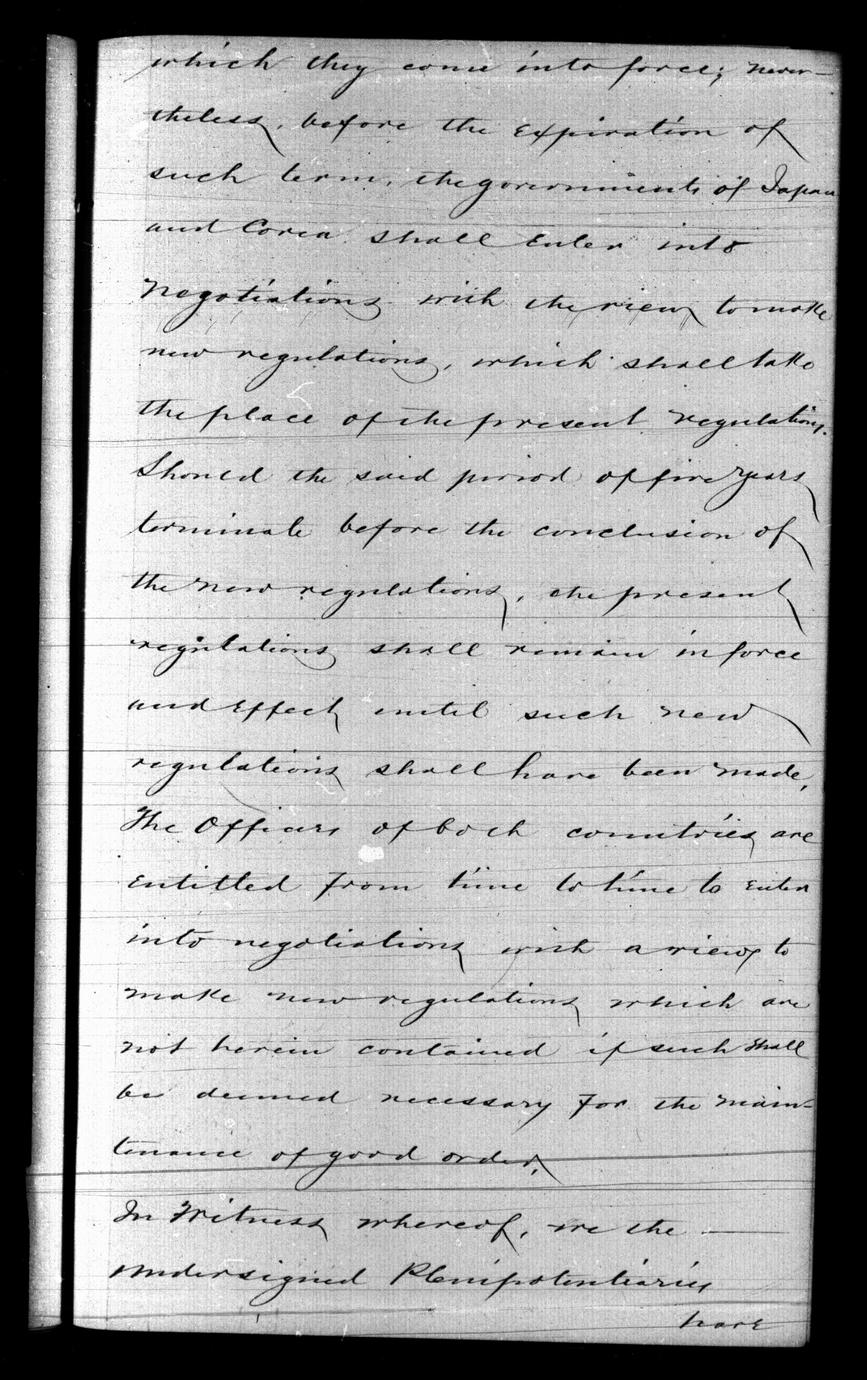 which they come into force; never-
theless, before the Expiration of
such term, the governments of Japan
and Corea shall Enter into
Negotiations with the view to make
new regulations, which shall take
the place of the present regulations.
Should the said period of five years
terminate before the conclusion of
the new regulations, the present
regulations shall remain in force
and Effect until such new
regulations shall have been made.
The Officers of both countries are
Entitled from time to time to Enter
into negotiations with a view to
make new regulations which are
not herein contained if such shall
be deemed necessary for the main-
tenance of good order.
In Witness whereof, we the
undersigned Plenipotentiaries
have